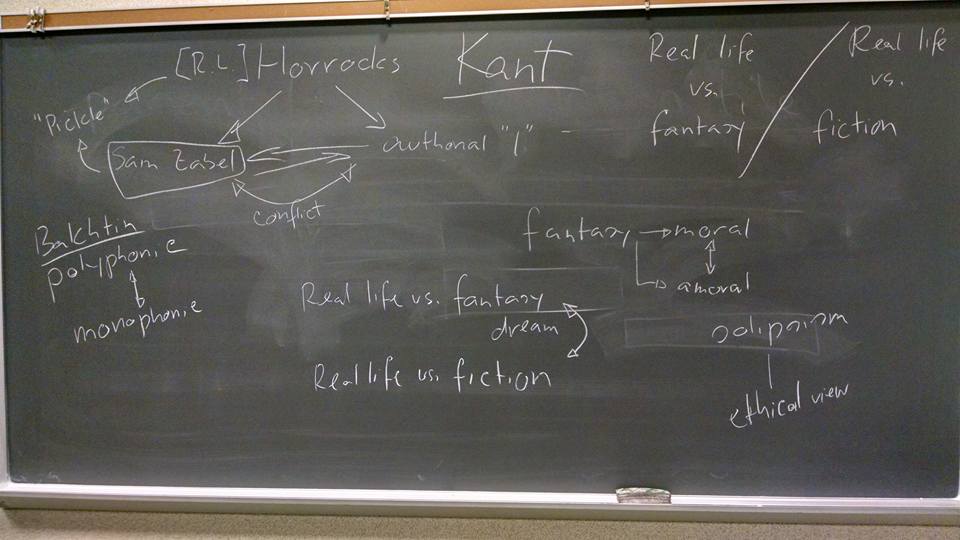 [R.L.] Horrocks
Kant
Real life
vs.
fantasy
Real life
vs.
fiction
"Pickle"
Sam Zabel
authorial "I"
conflict
Bakhtin
polyphonic
monophonic
fantasy → moral
amoral
Real life vs. fantasy
dream
Real life vs. fiction
solipsism
ethical view